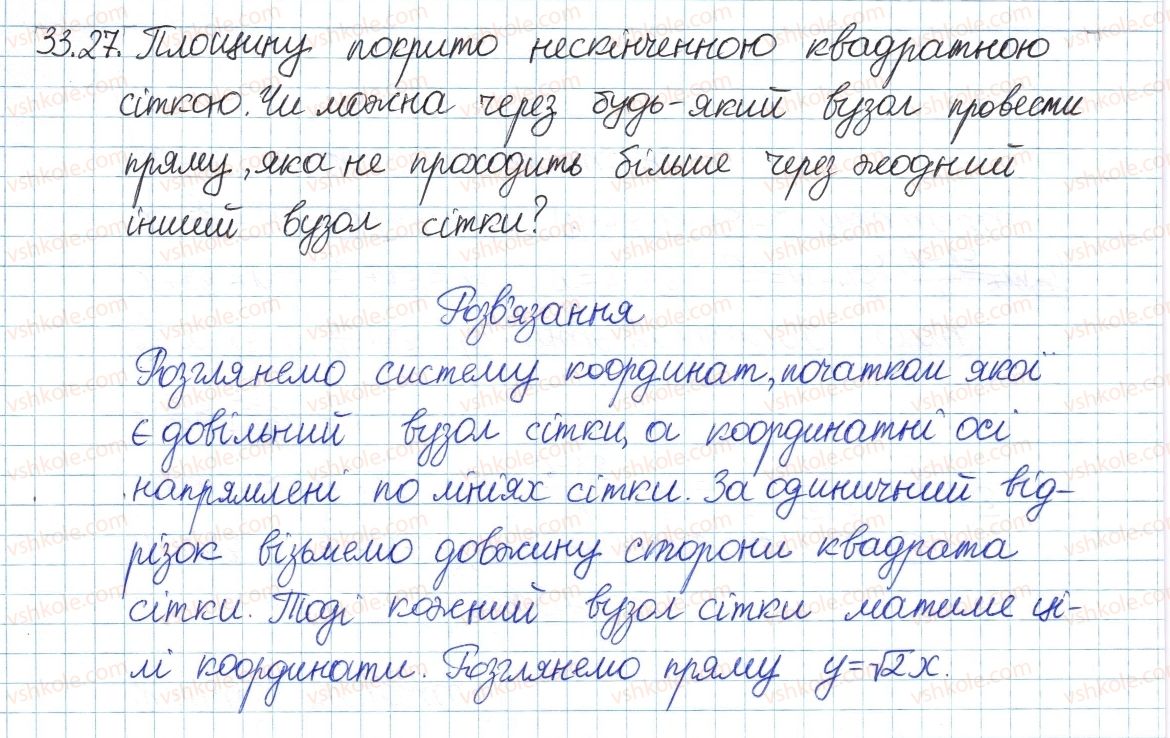 33.27. Площину покрито нескінченною квадратною
сіткою. Чи можна через будь-який вузол провести
пряму, яка не проходить більше через жодний
інший вузол сітки?
Розв'язання
Розглянемо систему координат, початком якої
є довільний вузол сітки, а координатні осі
напрямлені по лініях сітки. За одиничний від-
різок візьмемо довжину сторони квадрата
сітки. Тоді кожний вузол сітки матиме ці-
лі координати. Розглянемо пряму y=√2x.
vshkole.com